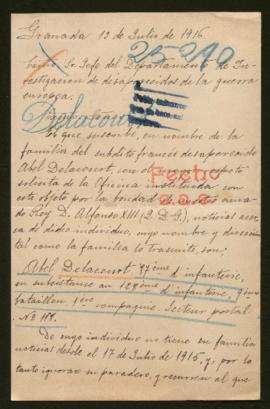 Granada 13 de Julio de 1916.
25-290
Sr. Jefe del Departamento de In-
vestigacion de desaparecidos de la guerra
europea.
Delacourt
que suscribe, en nombre de la
familia del subdito francés desaparecido
Abel Delacourt, con el mayor respeto
solicita de la Oficina instituida con
este objeto por la bondad de nuestro ama-
do Rey Dn Alfonso XIII (Q. D. G.), noticias acer-
ca de dicho individuo, cuyo nombre y dirección
tal como la familia lo trasmite, son:
Fecho
Abel Delacourt, 87ème d'infanterie,
en subsistance au 128ème d'infanterie, 9ème
bataillon 1ère compagnie. Secteur postal
Nº
De cuyo individuo no tiene su familia
noticias desde el 17 de Julio de 1915, y, por lo
tanto ignoran su paradero, y recurren al que